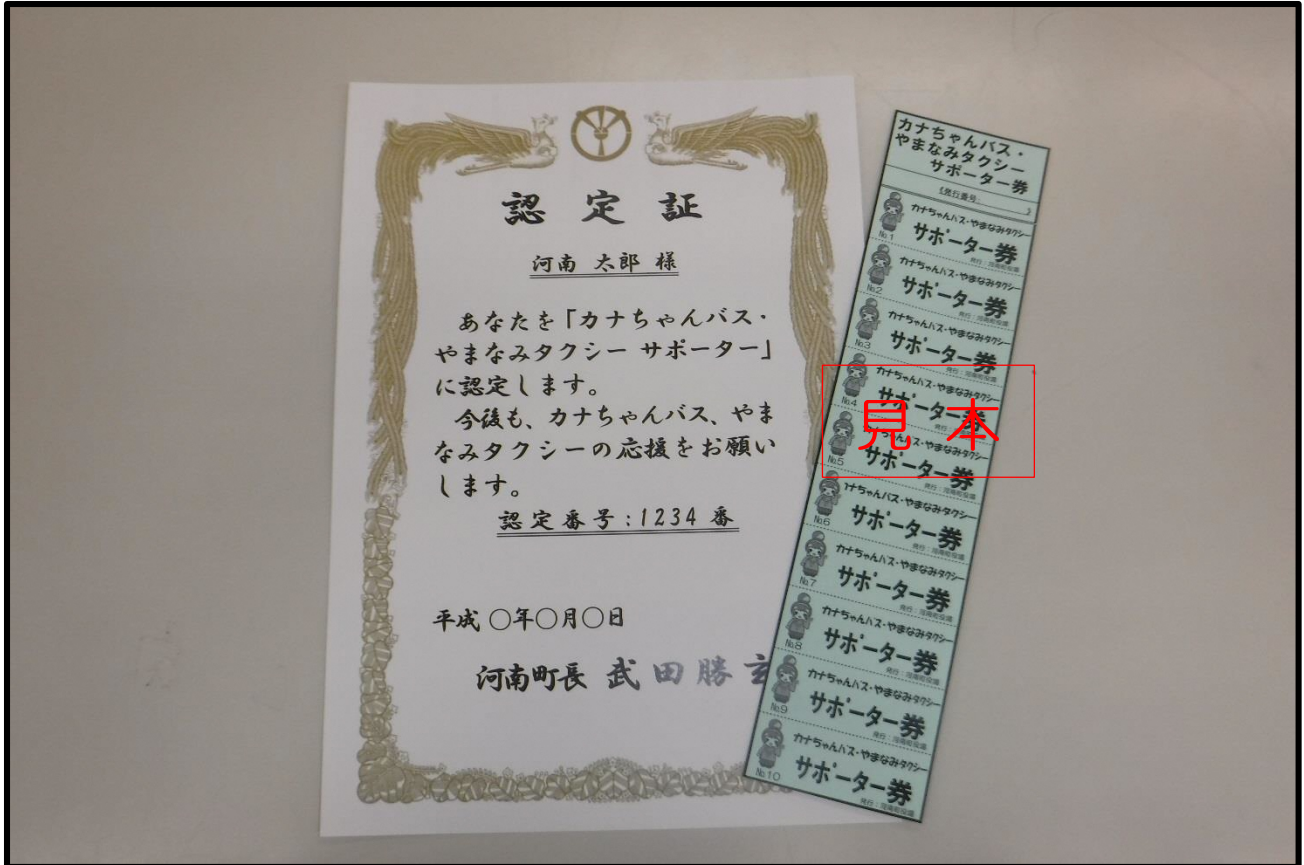 認定証
河南 太郎 様
あなたを「カナちゃんバス・
やまなみタクシー サポーター」
に認定します。
今後も、カナちゃんバス、やま
なみタクシーの応援をお願い
します。
認定番号:1234番
平成 〇年〇月〇日
河南町長 武田勝
カナちゃんバス・
やまなみタクシー
サポーター券
(発行番号: )
カナちゃんバス・やまなみタクシー
サポーター券
№1
発行:河南町役場
カナちゃんバス・やまなみタクシー
サポーター券
№2
発行:河南町役場
カナちゃんバス・やまなみタクシー
サポーター券
№3
発行:河南町役場
カナちゃんバス・やまなみタクシー
サポーター券
№4
発行:河南町役場
見 本
カナちゃんバス・やまなみタクシー
サポーター券
№5
発行:河南町役場
カナちゃんバス・やまなみタクシー
サポーター券
№6
発行:河南町役場
カナちゃんバス・やまなみタクシー
サポーター券
№7
発行:河南町役場
カナちゃんバス・やまなみタクシー
サポーター券
№8
発行:河南町役場
カナちゃんバス・やまなみタクシー
サポーター券
№9
発行:河南町役場
カナちゃんバス・やまなみタクシー
サポーター券
№10
発行:河南町役場